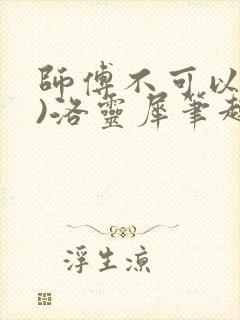 師傅不可以
)洛靈犀筆趣
浮生涼